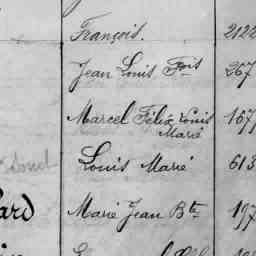 François. 2122
Jean Louis Fois 267
Marcel Félix Louis 167
Marié
Louis Marié 613
ard Marie Jean Bte 197